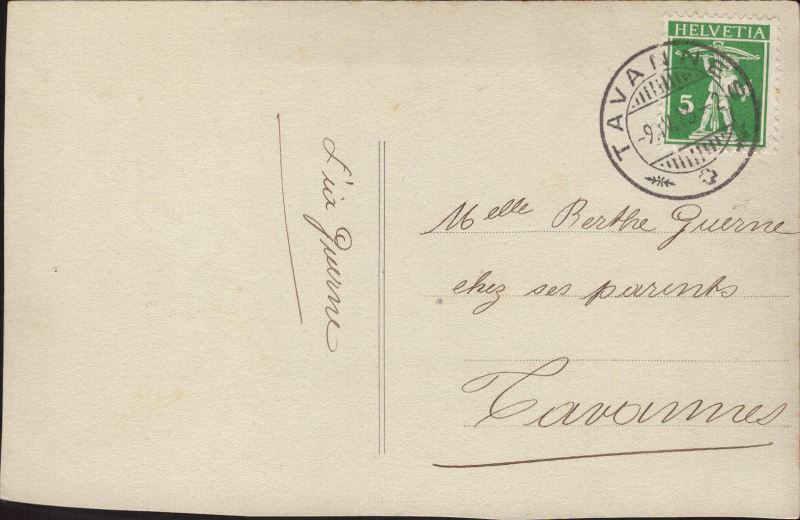 HELVETIA
5
TAVANNES
Guerne
Melle Berthe Guerne
chez ses parents
Tavannes